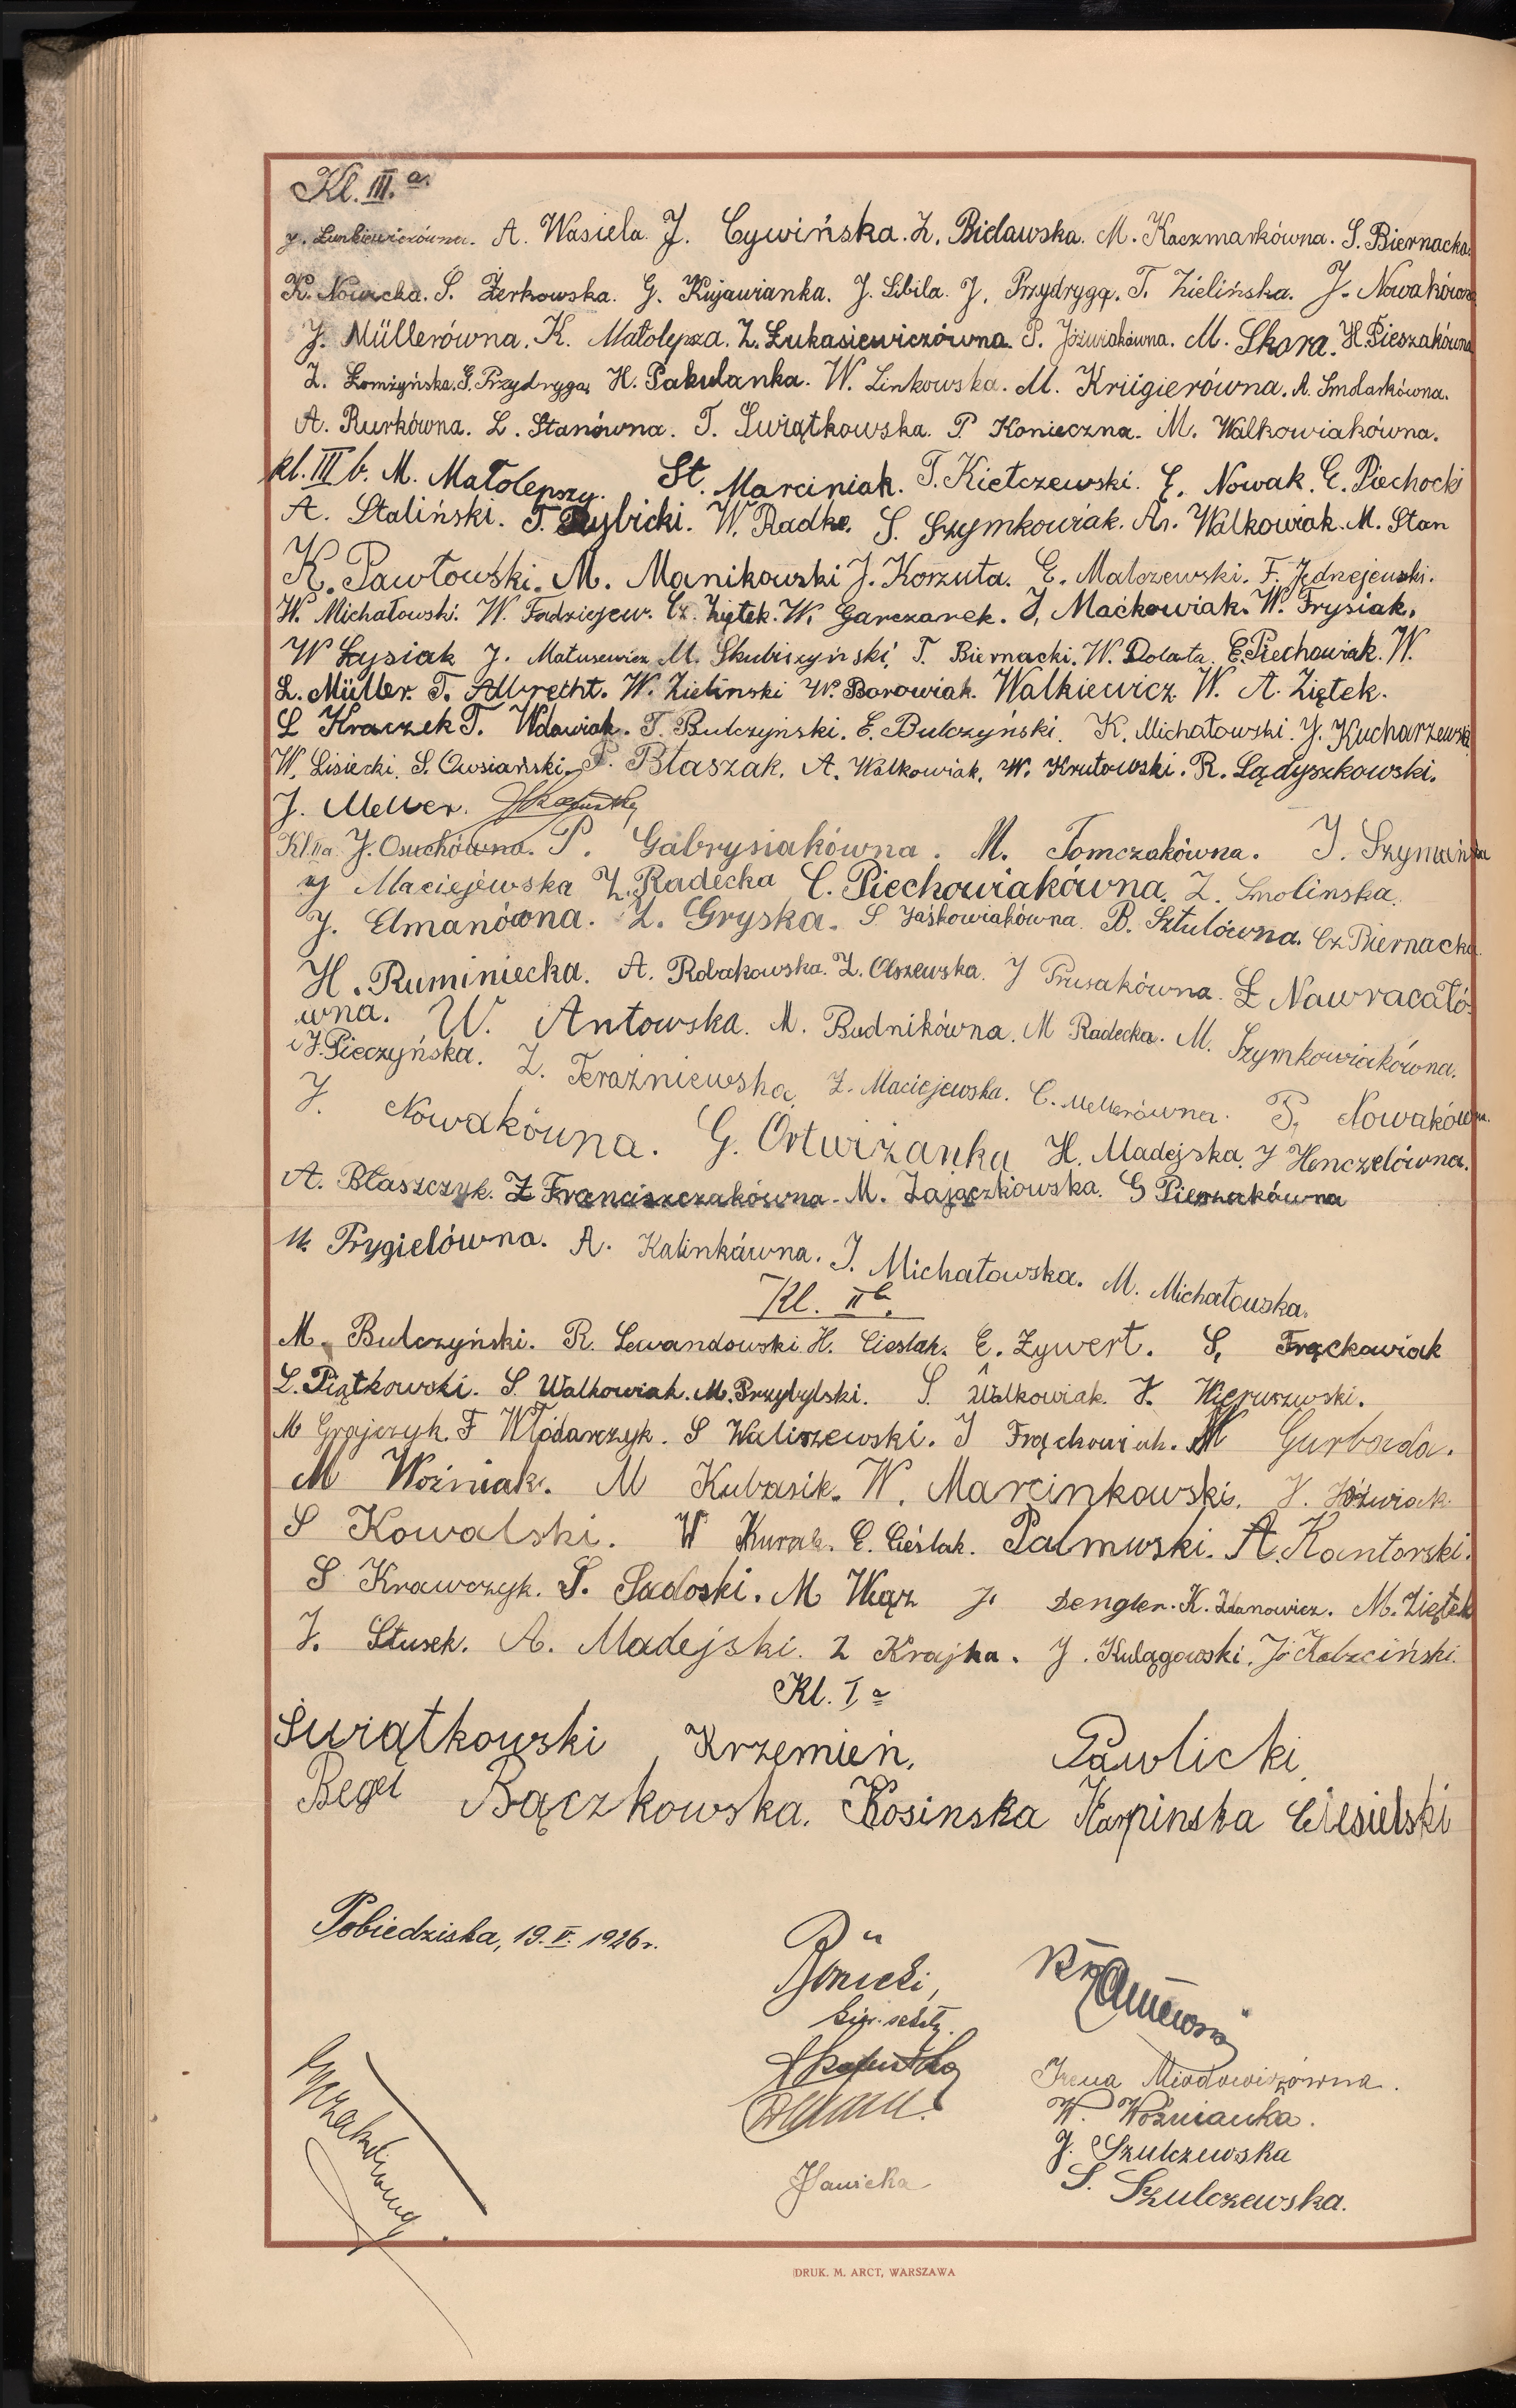 Kl. III. a.
J. Lunkiewiczówna. A. Wasiela. J. Cywińska. Z. Bielawska. M. Kaczmarkówna. S. Biernacka.
K. Nowicka. S. Żerkowska. G. Kujawianka. J. Sibila. J. Przydryga. T. Zielińska. J. Nowakówna
J. Müllerówna. K. Małolepsza. Z. Łukasiewiczówna. P. Jóźwiakówna. M. Skora. H. Pieszakówna
Z. Łomżyńska. G. Przydryga. H. Pakulanka. W. Linkowska. M. Krügierówna. A. Smolarkówna.
A. Rurkówna. L. Stanówna. T. Świątkowska. P. Konieczna. M. Walkowiakówna.
kl. III b. M. Małolepszy. St. Marciniak. T. Kiełczewski. E. Nowak. E. Piechocki
A. Staliński. T. Rybicki. W. Radke. S. Szymkowiak. An. Walkowiak. M. Stan
K. Pawłowski. M. Manikowski J. Korzuta. E. Malczewski. F. Jędrzejewski.
W. Michałowski. W. Fadziejew. Cz. Ziętek. W. Garczarek. J. Maćkowiak. W. Frysiak.
W Łysiak J. Matusewicz M. Skubiszyński T. Biernacki. W. Dolata E. Piechowiak. W.
L. Müller. T. Albrecht. W. Zieliński W. Borowiak. Walkiewicz W. A. Ziętek.
L Kraczek T. Wdowiak. T. Bulczyński. E. Bulczyński. K. Michałowski. J. Kucharzewski
W. Lisiecki. S. Owsiański. P. Błaszak. A. Walkowiak. W. Krutowski. R. Lądyszkowski.
J. Meller.
Kl. IIa. J. Osuchówna. P. Gabrysiakówna. M. Tomczakówna. J. Szymańska
J Maciejewska Z. Radecka C. Piechowiakówna. Z. Smolinska.
J. Elmanówna. Z. Gryska. S Jaśkowiakówna. B. Sztulówna. Cz. Biernacka.
H. Ruminiecka. A. Robakowska. Z. Olszewska. J Prusakówna. Ł Nawracałó-
wna. W. Antowska. M. Budnikówna. M Radecka. M. Szymkowiakówna.
i J. Pieczyńska. Z. Teraźniewska. Z. Maciejewska. C. Mellerówna. P. Nowakówna.
J. Nowakówna. G. Ortwiżanka H. Madejska. J Henczelówna.
A. Błaszczyk. Z Franciszczakówna. M. Zajączkowska. G Pieszakówna
M. Prygielówna. A. Kalinkówna. J. Michałowska. M. Michałowska.
Kl. II b.
M. Bulczyński. R. Lewandowski H. Cieslak. E. Zywert. S. Frąckowiak
L. Piątkowski. S. Walkowiak. M. Przybylski. S. Walkowiak. H. Wieruszewski.
M Grajczyk. F Włodarczyk. S Waliszewski. J Frąckowiak. W Gurbada.
M Woźniak. M Kubasik. W. Marcinkowski. H. Jóźwiak.
S Kowalski. W Kurak. E. Cieślak. Palmuski. A. Kantorski.
S Krawczyk. S. Sadoski. M Wąż J. Dengler. K. Zdanowicz. M. Ziętek
J. Stusek. A. Madejski. Z Krajka. J. Kulągowski. J. Kabaciński.
Kl. I a
Świątkowski Krzemień. Pawlicki.
Begel Bączkowska. Kosinska Karpinska Ciesielski
Pobiedziska, 19. V. 1926 r.
Irena Miodowiczówna.
W. Woźnianka.
J. Szulczewska
S. Szulczewska.
DRUK. M. ARCT, WARSZAWA